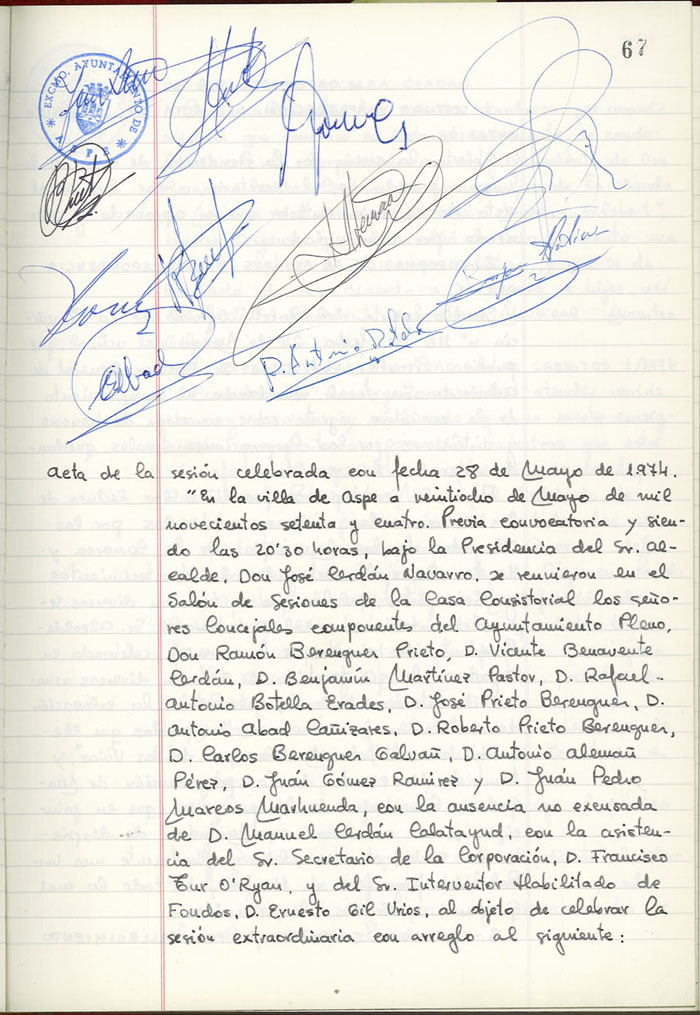 67
EXCMO. AYUNTAMIENTO DE
ASPE
Abad
P. Antonio Botella
Acta de la sesión celebrada con fecha 28 de Mayo de 1.974.
"En la villa de Aspe a veintiocho de Mayo de mil
novecientos setenta y cuatro. Previa convocatoria y sien-
do las 20'30 horas, bajo la Presidencia del Sr. Al-
calde, Don José Cerdán Navarro, se reunieron en el
Salón de Sesiones de la Casa Consistorial los seño-
res Concejales componentes del Ayuntamiento Pleno,
Don Ramón Berenguer Prieto, D. Vicente Benavente
Cerdán, D. Benjamín Martínez Pastor, D. Rafael-
Antonio Botella Erades, D. José Prieto Berenguer, D.
Antonio Abad Cañizares, D. Roberto Prieto Berenguer,
D. Carlos Berenguer Galvañ, D. Antonio Alemañ
Pérez, D. Juán Gómez Ramirez y D. Juán Pedro
Marcos Marhuenda, con la ausencia no excusada
de D. Manuel Cerdán Calatayud, con la asisten-
cia del Sr. Secretario de la Corporación, D. Francisco
Tur O'Ryan, y del Sr. Interventor Habilitado de
Fondos, D. Ernesto Gil Urios, al objeto de celebrar la
sesión extraordinaria con arreglo al siguiente: